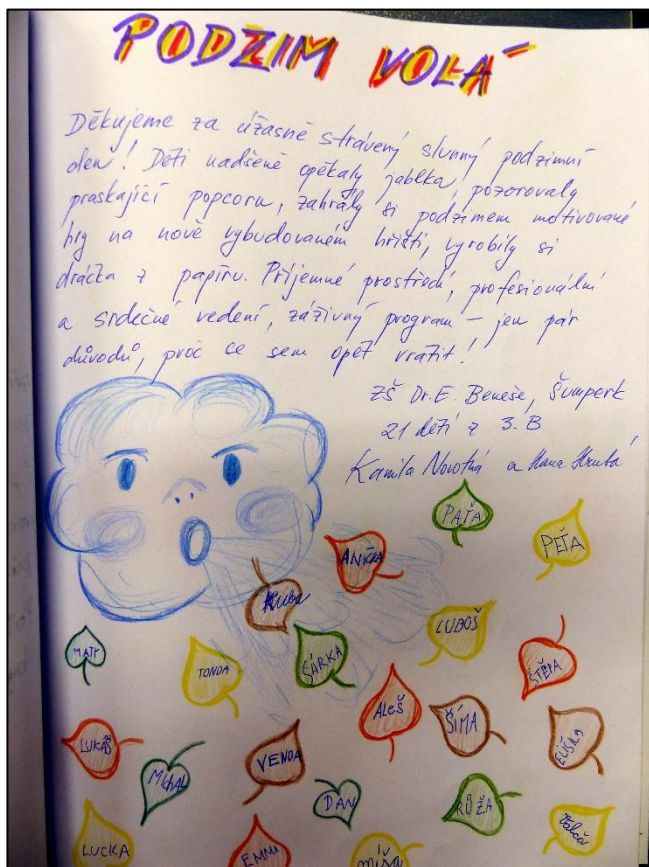 PODZIM VOLÁ
Děkujeme za úžasně strávený slunný podzimní
den! Děti nadšeně opékaly jablka, pozorovaly
praskající popcorn, zahrály si podzimem motivované
hry na nově vybudovaném hřišti, vyrobily si
dráčka z papíru. Příjemné prostředí, profesionální
a srdečné vedení, záživný program – jen pár
důvodů, proč se sem opět vrátit!
ZŠ Dr. E. Beneše, Šumperk
21 dětí z 3. B
Kamila Novotná a Hana Hrubá
PAŤA
PEŤA
ANIČKA
Kuba
LUBOŠ
MATY
TONDA
ŠÁRKA
ŠTĚPA
ALEŠ
ŠÍMA
LUKÁŠ
ELIŠKA
VENDA
MICHAL
DAN
RŮŽA
LUCKA
EMMA
MÍŠA